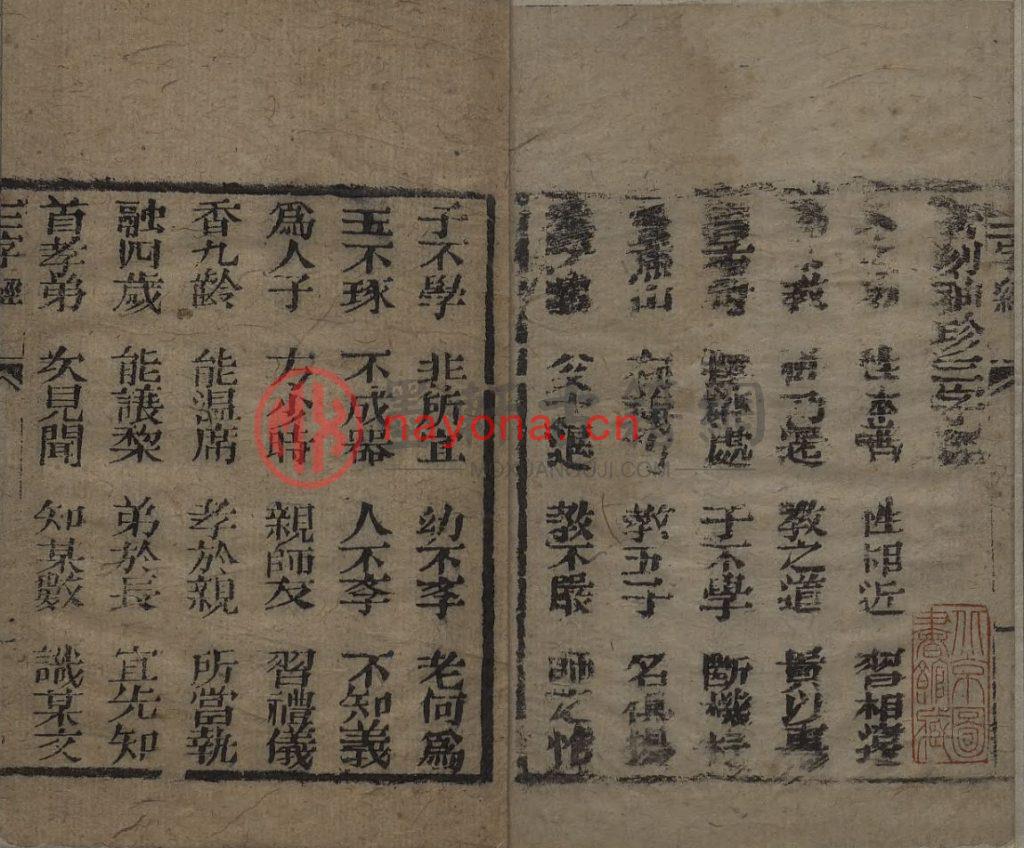 三字經
刻袖珍三字
性本善 性相近 習相遠
教 性乃遷 教之道 貴以專
孟母 擇鄰處 子不學 斷機杼
燕山 有義方 教五子 名俱揚
過 教不嚴 師之惰
北京圖書館藏
子不學 非所宜 幼不斈 老何爲
玉不琢 不成器 人不斈 不知義
爲人子 方少時 親師友 習禮儀
香九齡 能温席 孝於親 所當執
融四歲 能讓梨 弟於長 宜先知
首孝弟 次見聞 知某數 識某文
三字經
nayona.cn
MOXUANGUJI.COM